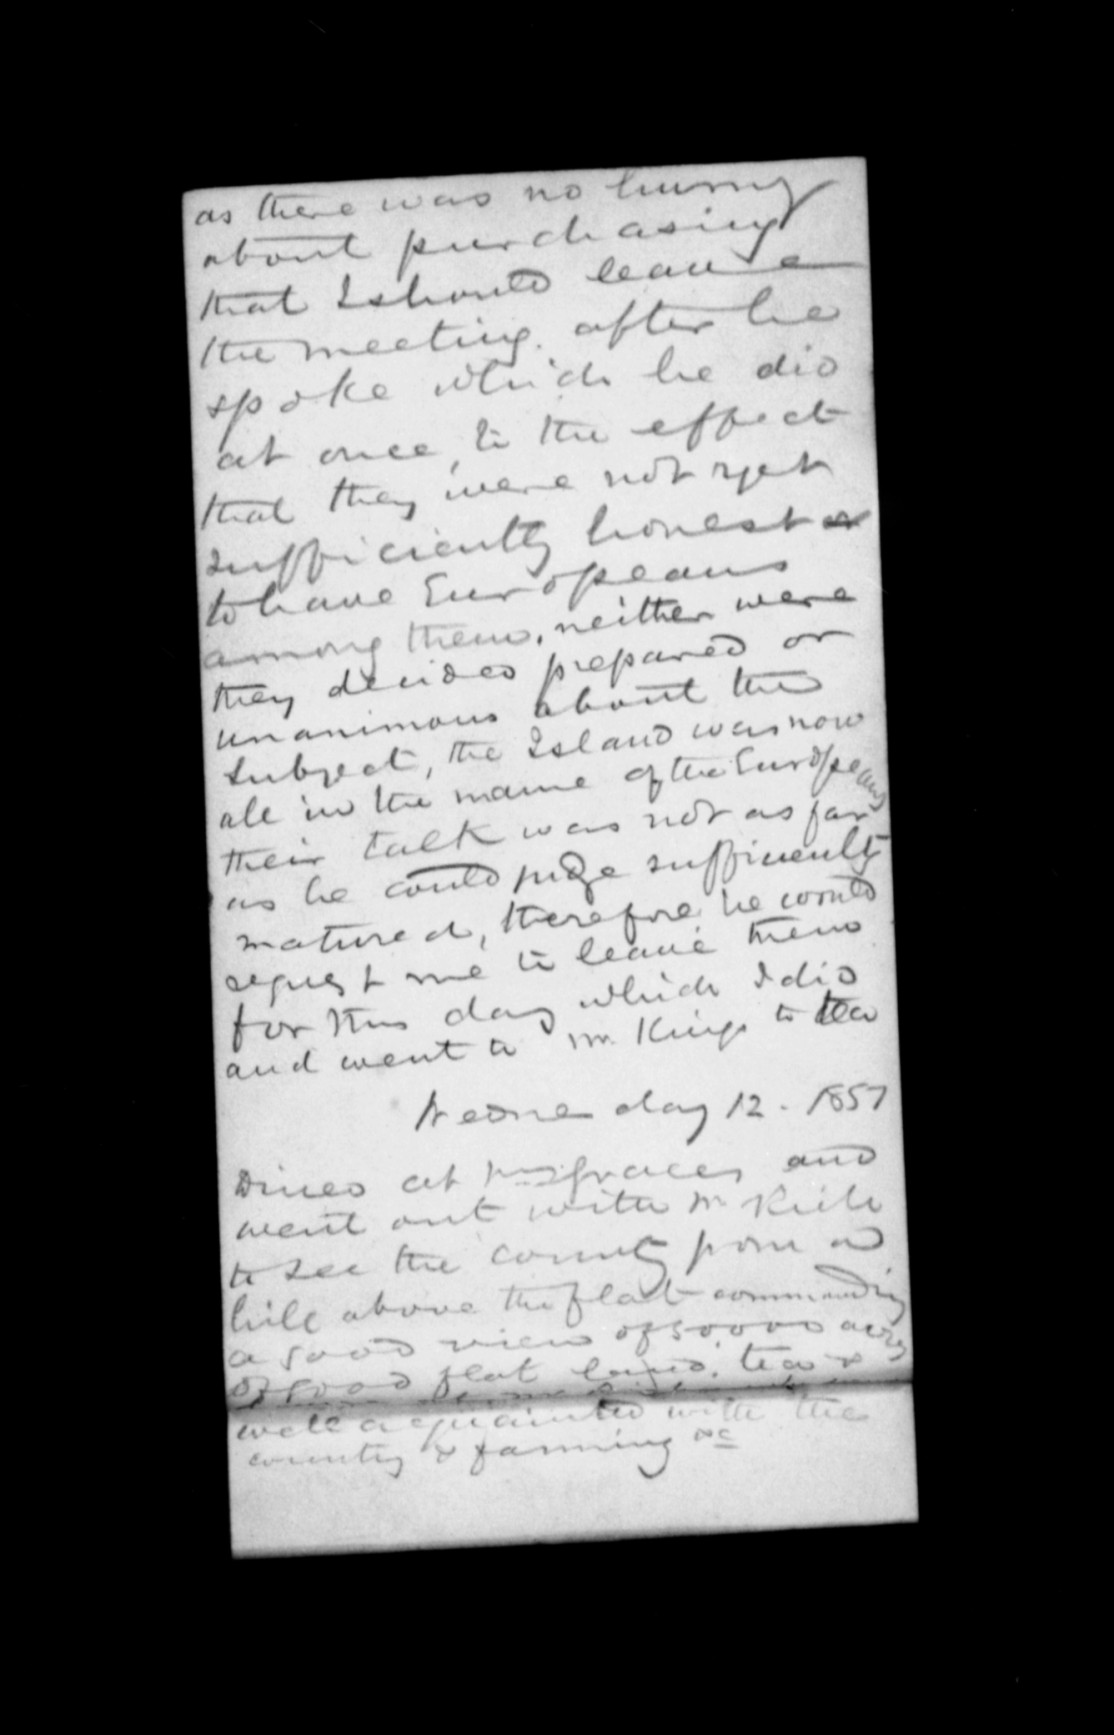 as there was no hurry
about purchasing
that I should leave
the meeting. after he
spoke which he did
at once, to the effect
that they were not yet
sufficiently honest
to have Europeans
among them, neither were
they decided prepared or
unanimous about the
subject, the Island was now
all in the name of the Europeans
their talk was not as far
as he could judge sufficiently
matured, therefore he would
request me to leave them
for this day which I did
and went to Mr. Kings to tea
Wednesday 12. 1857
Dined at and
went out with Mr
to see the country from a
hill above the flat commanding
a good view of 50000 acres
of good flat land. tea &
well acquainted with the
country & farming &c